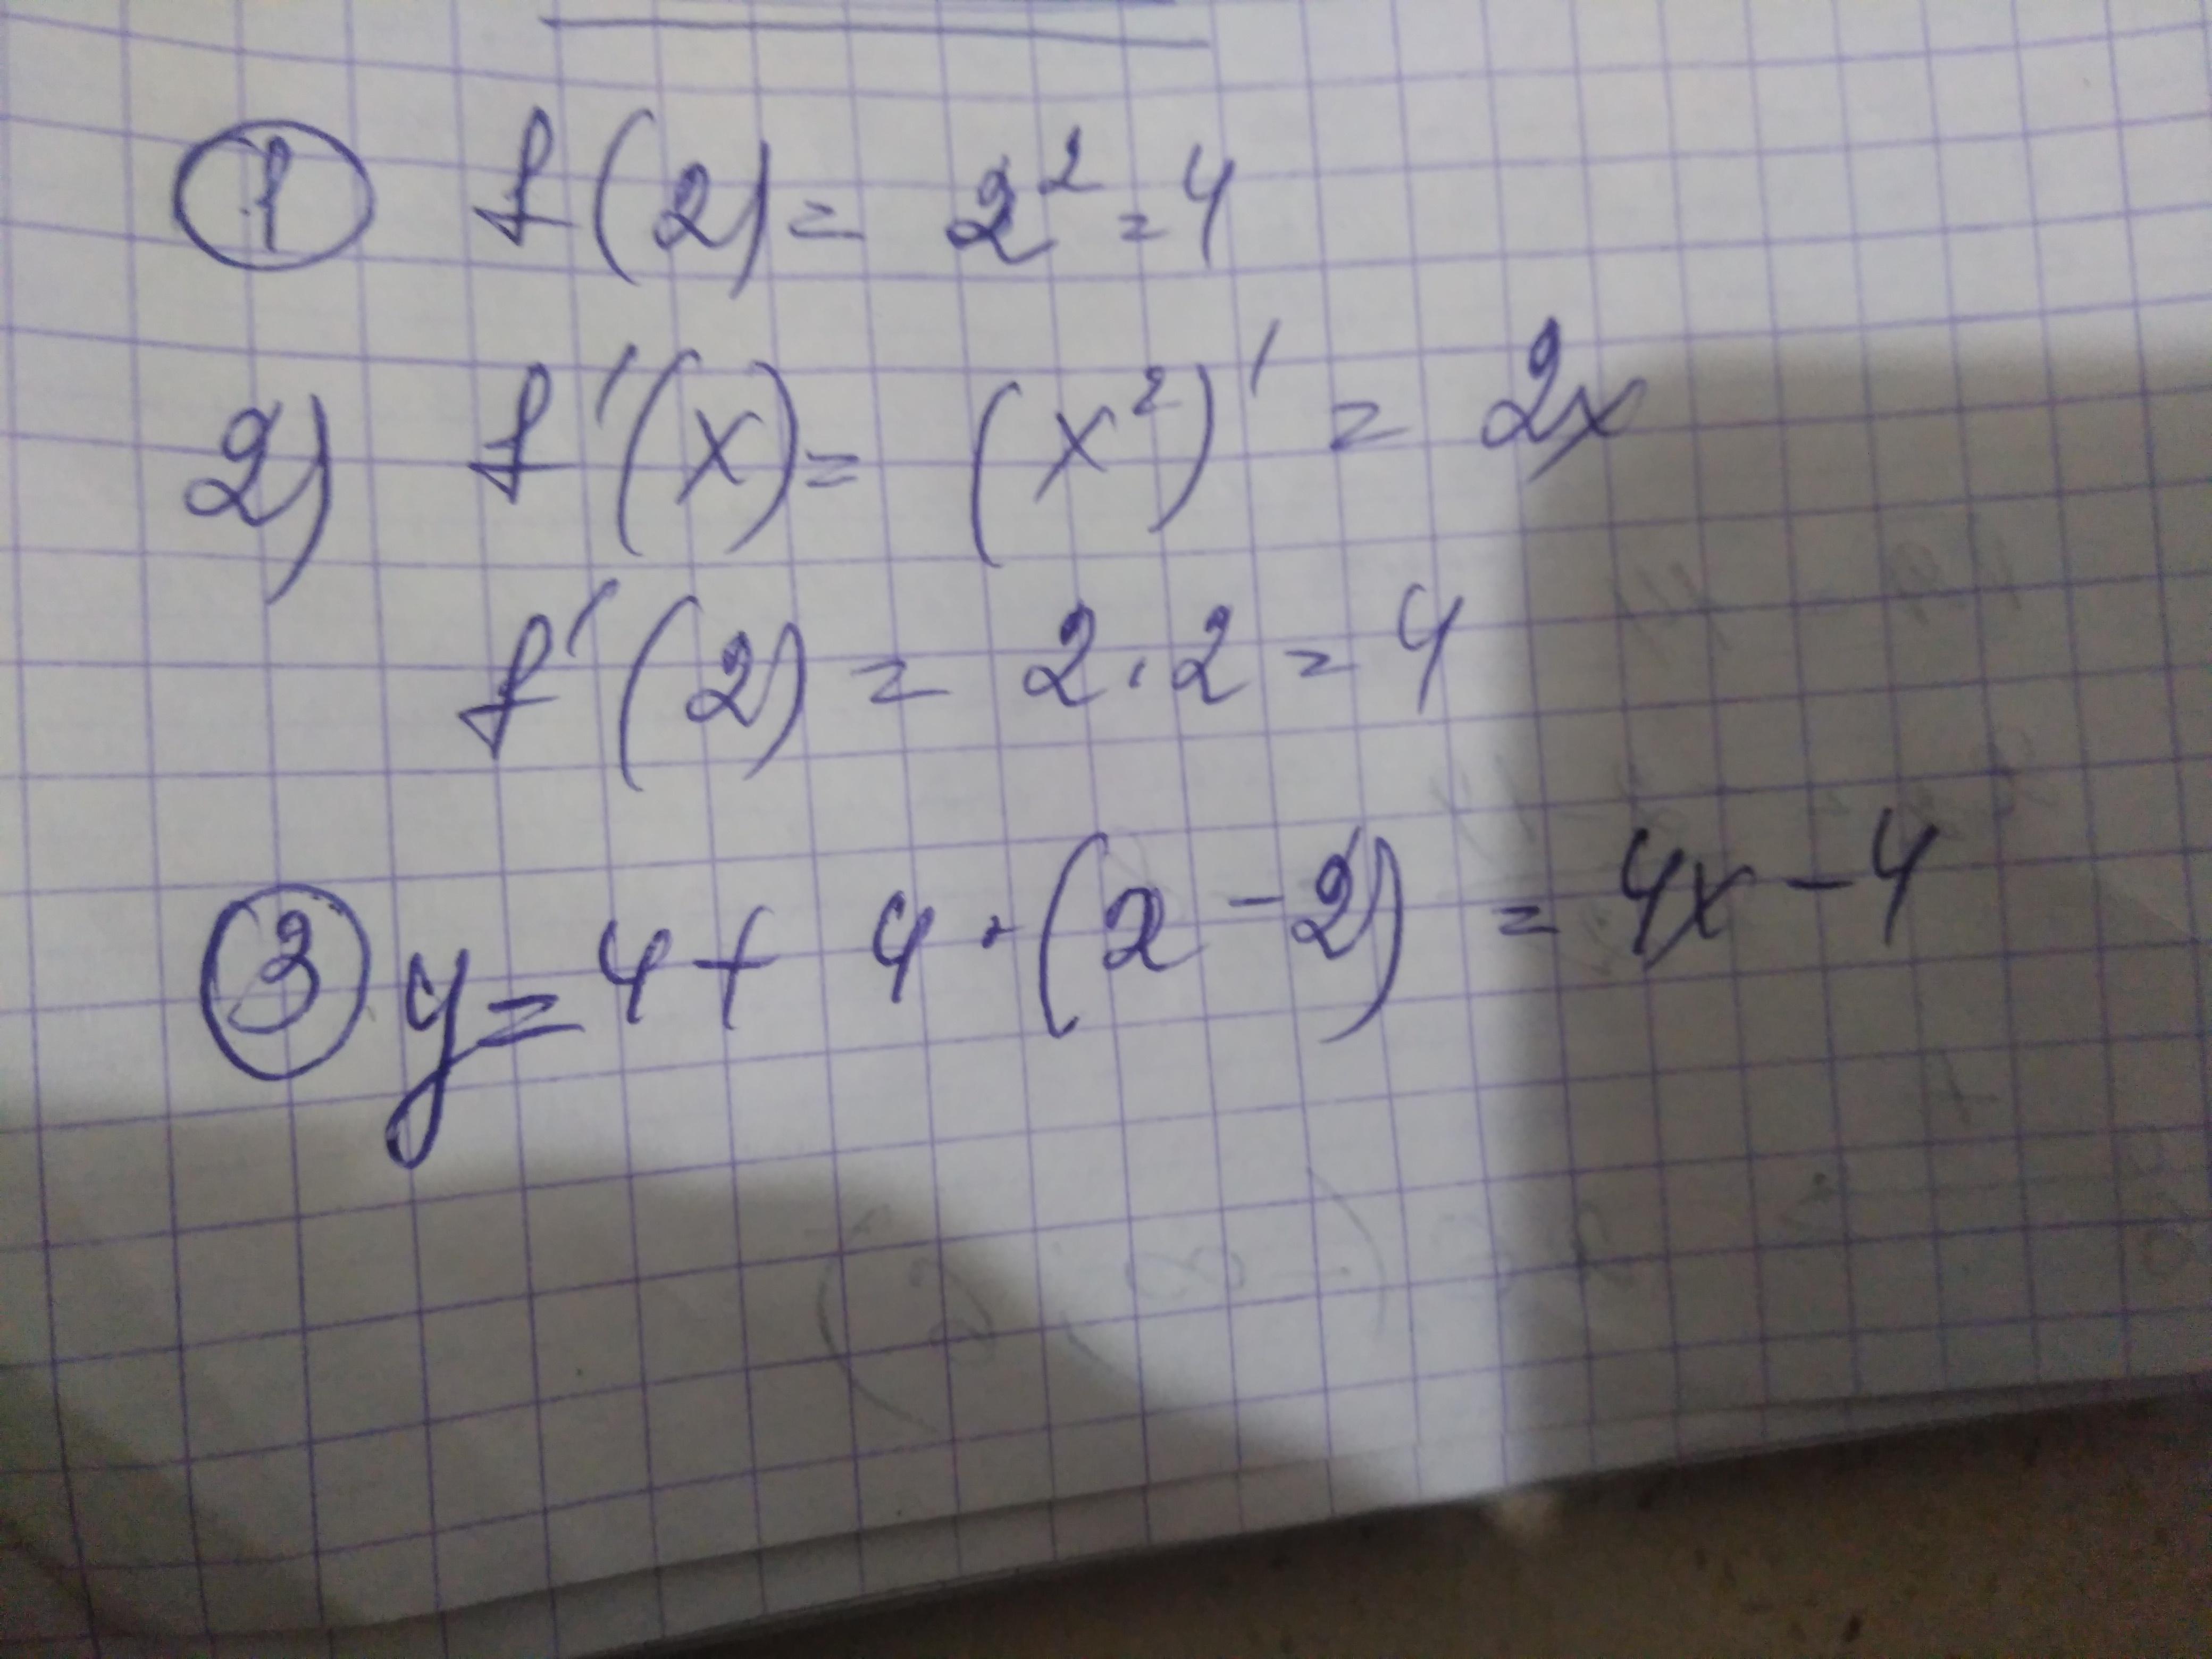 1 f(2) = 2² = 4
2) f'(x) = (x²)' = 2x
f'(2) = 2·2 = 4
3 y = 4 + 4·(2 - 2) = 4x - 4